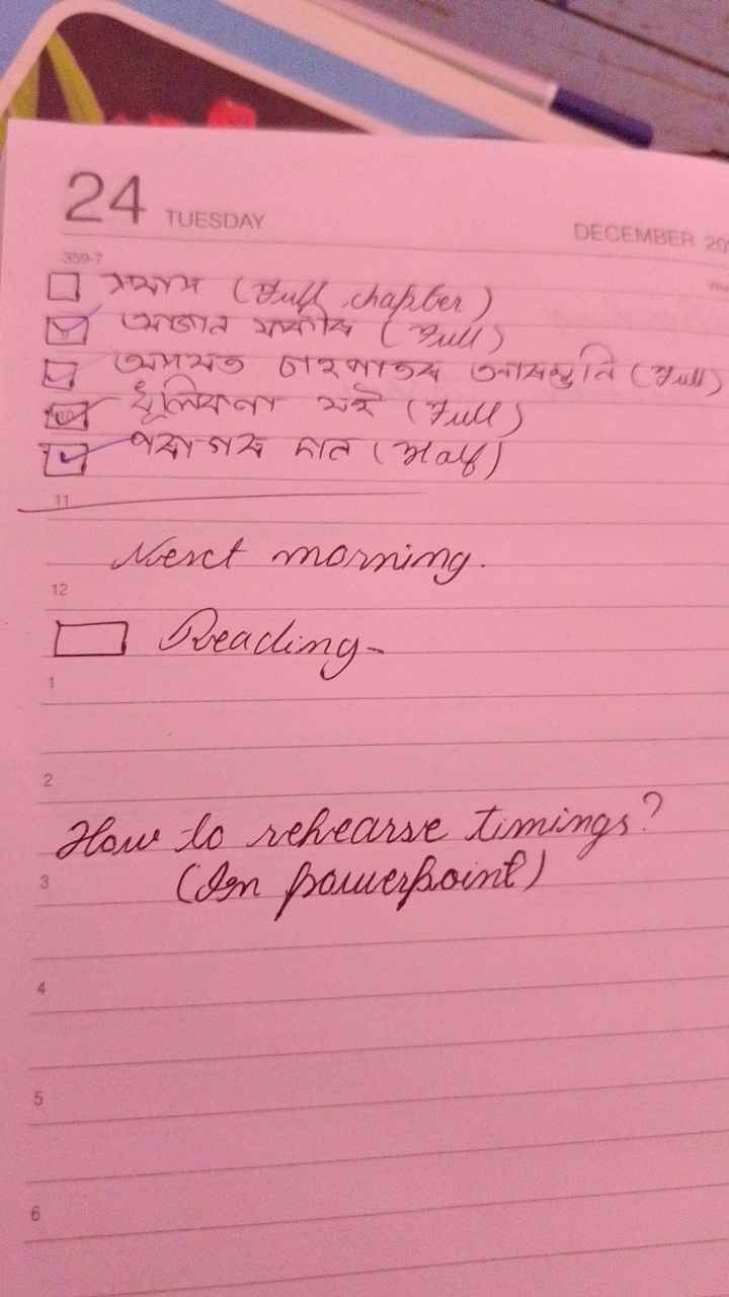 24 TUESDAY DECEMBER 20
359-7
সমাস (Full chapter)
অজান ফকীৰ (Full)
অসমত চাহপাতৰ (Full)
ধূলিকণা মই (Full)
দান (Half)
11
Next morning.
12
Reading-
1
2
How to rehearse timings?
3
(In powerpoint)
4
5
6